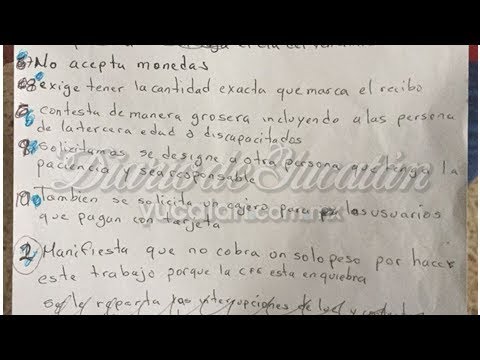 No acepta monedas
8 exige tener la cantidad exacta que marca el recibo
contesta de manera grosera incluyendo a las persona
de la tercera edad o discapacitados
Solicitamos se designe a otra persona que tenga la
paciencia y sea responsable
10 Tambien se solicita un cajero para los usuarios
que pagan con tarjeta
2 Manifiesta que no cobra un solo peso por hacer
este trabajo porque la CFE esta en quiebra
reparta las interrupciones de luz y
Diario de Yucatán
yucatan.com.mx